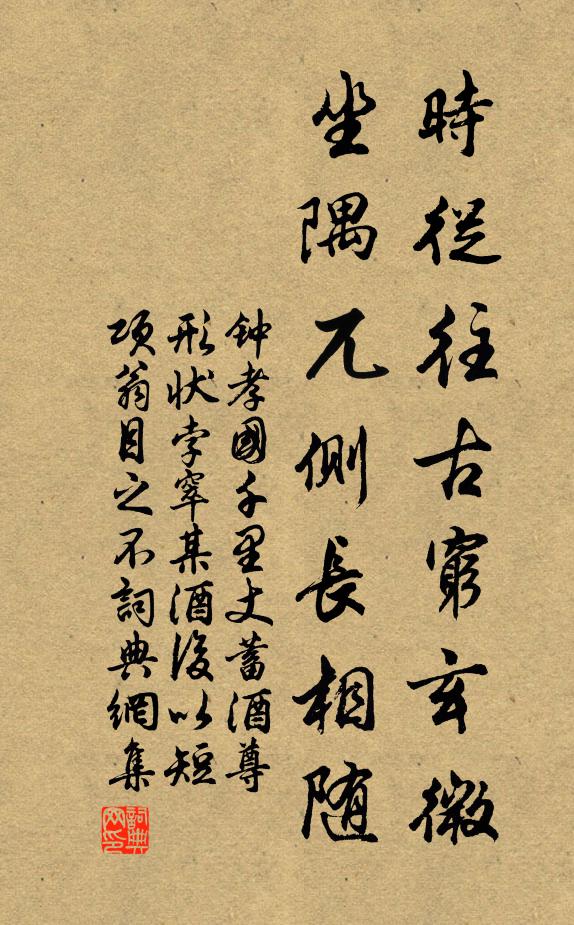 時從往古窮玄微
坐隅兀側長相随
钟孝國千里丈蓄酒尊
形状孛窣某酒後以短
项翁目之不詞典網集
詞典网印